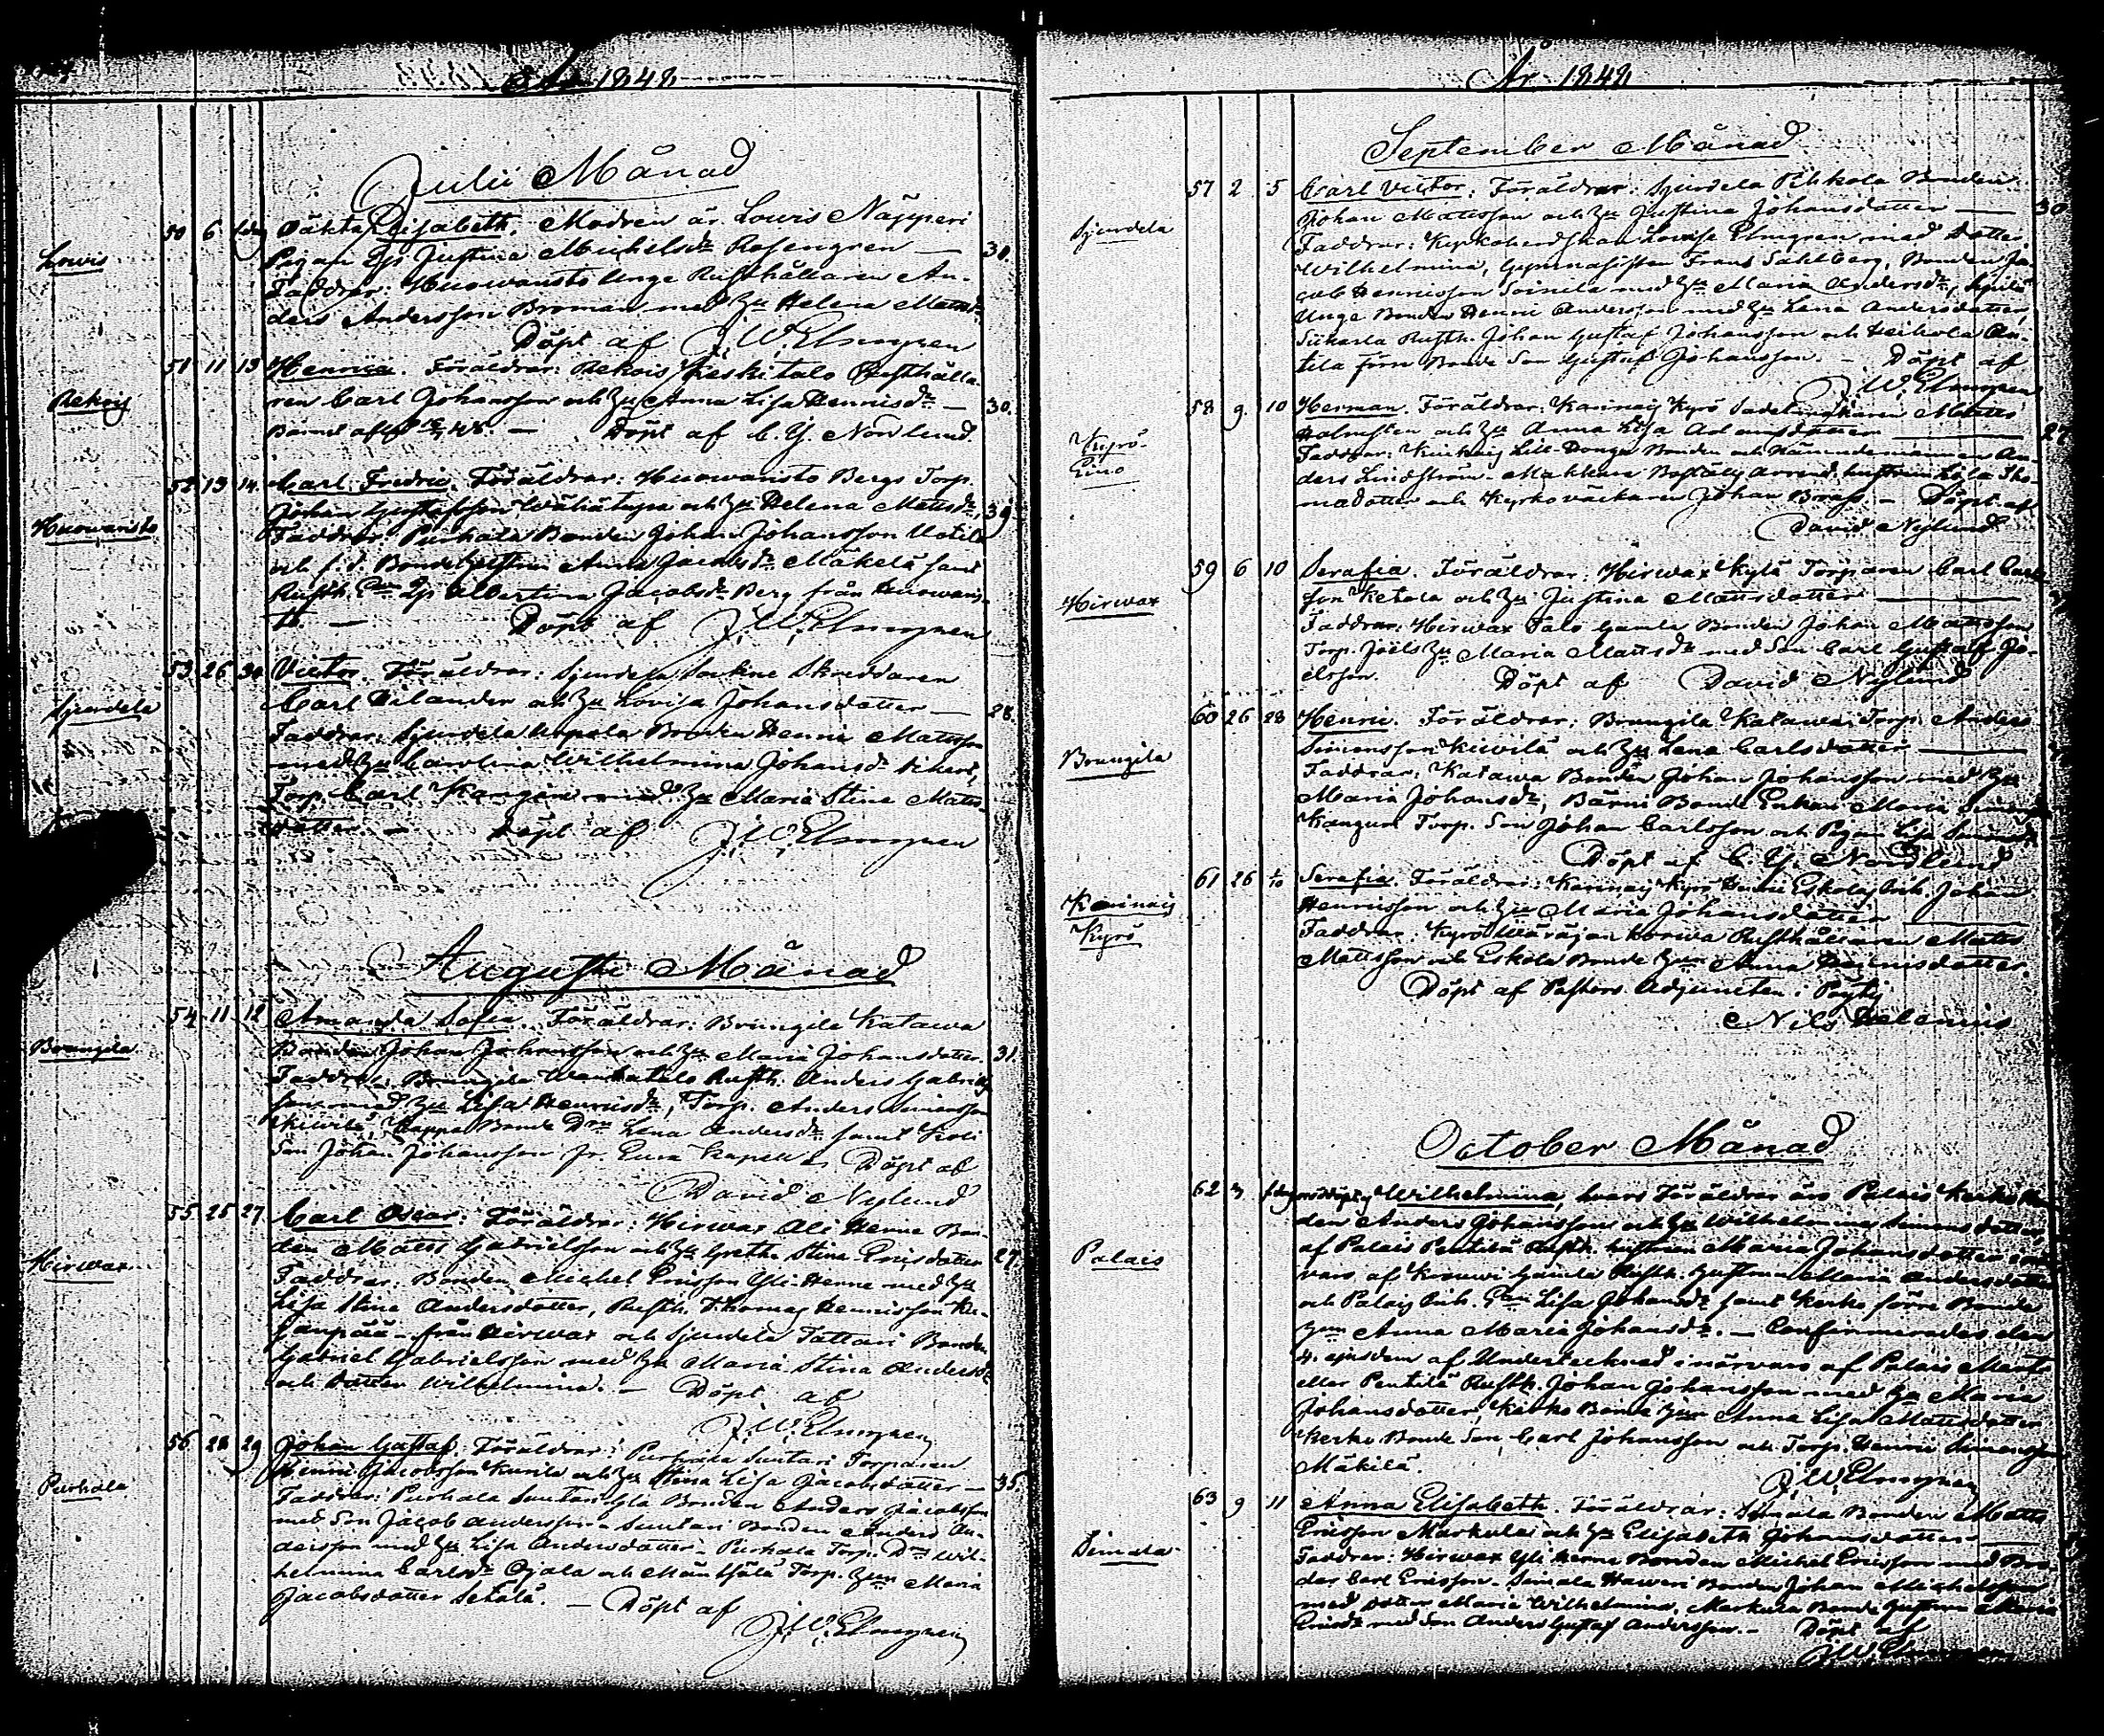 År 1848
Julii Månad
Lowis
50 6 s.dag Oäkta Elisabeth. Modren är Lowis Näpperi
Pigan Justina Michelsdr Rosengren — 30.
Faddrar: Huowansto Unge Rusthållaren An-
ders Andersson Broman med Hu Helena Mattsdr
Döpt af J.W. Elmgren
Rekois
51 11 13 Henrica. Föräldrar: Rekois Keskitalo Rusthålla-
ren Carl Johansson och Hu Anna Lisa Henricsdr — 30.
Barnet — Döpt af C. G. Norlund
Huowansto
52 13 14. Carl Fredric. Föräldrar: Huowansto Bergs Torp.
Johan Gustafsson Wähätupa och Hu Helena Mattsdr 39
Faddrar: Purhala Bonden Johan Johansson Uotila
och Anna Jacobsdr Mäkelä samt
Rusth. Albertina Jacobsdr Berg från Huowans-
to. — Döpt af J.W. Elmgren
Sjundela
53 26 30 Victor. Föräldrar: Sjundela Sockne Skreddaren
Carl Silander och Hu Lovisa Johansdotter — 28.
Faddrar: Sjundela Uupala Bonden Henric Mattsson
med Hu Carolina Wilhelmina Johansdr
Torp. Carl Kangin med Hu Maria Stina Matts-
dotter — Döpt af J.W. Elmgren
Augusti Månad
Brungila
54 11 12 Amanda Sofia. Föräldrar: Brungila Katawa
Bonden Johan Johansson och Hu Maria Johansdotter. 31.
Faddrar: Brungila Wanhatalo Rusth. Anders Gabriels-
son med Hu Lisa Henricsdr, Torp. Anders Simonsson
Kiwilä, Kappa Bonde Dr Lena Andersdr samt
Son Johan Johansson fr. Eura Kapell. Döpt af
David Nylund
Hirwax
55 25 27 Carl Oscar. Föräldrar: Hirwax Ali Henne Bon-
den Matts Gabrielsson och Hu Greta Stina Ericsdotter 27
Faddrar: Bonden Michel Ericsson Yli Henne med Hu
Lisa Stina Andersdotter, Rusth. Thomas Henricsson
från Hirwax och Sjundela Tattari Bonden
Gabriel Gabrielsson med Hu Maria Stina Andersdr
och Dotter Wilhelmina. — Döpt af
J.W. Elmgren
Purhala
56 28 29 Johan Gustaf. Föräldrar: Purhala Suntari Torparen
Henric Jacobsson Kurila och Hu Stina Lisa Jacobsdotter — 35.
Faddrar: Purhala Suntari Yla Bonden Anders Jacobsson
med Son Jacob Andersson - Suntari Bonden Anders An-
dersson med Hu Lisa Andersdotter - Purhala Torp. Dr Wil-
helmina Carlsdr Ojala och Mäntsälä Torp. Hun Maria
Jacobsdotter Setälä. — Döpt af
J.W. Elmgren
År 1848
September Månad
Sjundela
57 2 5 Carl Victor. Föräldrar: Sjundela Pihkola Bonden
Johan Mattsson och Hu Justina Johansdotter — 30
Faddrar: Kyrkoherdskan Lovise Elmgren med Dotter
Wilhelmina, Gymnasisten Frans Sahlberg, Bonden Ja-
cob Henricsson Soinila med Hu Maria Andersdr,
Unge Bonden Henric Andersson med Hu Lena Andersdotter,
Rusth. Johan Gustaf Johansson och Heikola An-
tila förre Bonde Son Gustaf Johansson. — Döpt af
J.W. Elmgren
Kyrö-
Eino
58 9. 10 Herman. Föräldrar: Karinais Kyrö Sadelmakaren Matts
Holmsten och Hu Anna Lisa Adamsdotter — 27
Faddrar: Lill-Donga Bonden och Nämndemannen An-
ders Lindström - Makkara Boställs Arrend. hustrun Lisa Tho-
madotter och Kyrkoväckaren Johan Brass. — Döpt af
David Nylund
Hirwax
59 6 10 Serafia. Föräldrar: Hirwax Kylä Torparen Carl Carls-
son Ketola och Hu Justina Mattsdotter —
Faddrar: Hirwax Talo Gamla Bonden Johan Mattsson
Torp. Joëls Hu Maria Mattsdr med Son Carl Gustaf Jo-
elsson. Döpt af David Nylund
Brungila
60 26 28 Henric. Föräldrar: Brungila Katawa Torp. Anders
Simonsson Kiwilä och Hu Lena Carlsdotter —
Faddrar: Katawa Bonden Johan Johansson med Hu
Maria Johansdr, Bärni Bonde Enkan Maria
Torp. Son Johan Carlsson och Pigan Lisa
Döpt af C. G. Nordlund
Karinais
Kyrö
61 26 1/10 Serafia. Föräldrar: Karinais Kyrö Eskola Johan
Henricsson och Hu Maria Johansdotter —
Faddrar: Kyrö Wäräjän Korwa Rusthållaren Matts
Mattsson och Eskola Bonde Hun Anna Henricsdotter.
Döpt af Pastors Adjuncten i Pöytis
Nils Helenius
October Månad
Palais
62 3 s.dag nöddöpt Wilhelmina, hvars Föräldrar äro Palais Kerko Bon-
den Anders Johansson och Hu Wilhelmina Simonsdotter,
af Palais Pentilä Rusth. hustrun Maria Johansdotter i när-
varo af Krouwi Gamla Rusth. Hustrun Maria Andersdotter
och Palais Lisa Johansdr samt Kerko förre Bonde
Hun Anna Maria Johansdr. — Confirmerades den
4. ejusdem af Undertecknad i närvaro af Palais Martti
eller Pentilä Rusth. Johan Johansson med Hu Maria
Johansdotter, Kerko Bonde Hun Anna Lisa Mattsdotter
Kerko Bonde Son Carl Johansson och Torp. Henric Simonsson
Mäkilä.
J.W. Elmgren
Simala
63 9 11 Anna Elisabeth. Föräldrar: Simala Bonden Matts
Ericsson Markula och Hu Elisabeth Johansdotter —
Faddrar: Hirwax Yli Henne Bonden Michel Ericsson med Bro-
der Carl Ericsson - Simala Haweri Bonden Johan Michelsson
med Dotter Maria Wilhelmina, Markula Bonde Hustrun Maria
Ericsdr med Son Anders Gustaf Andersson. — Döpt af
J.W. Elmgren